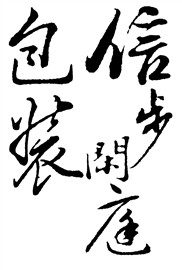 信步閑庭
包裝